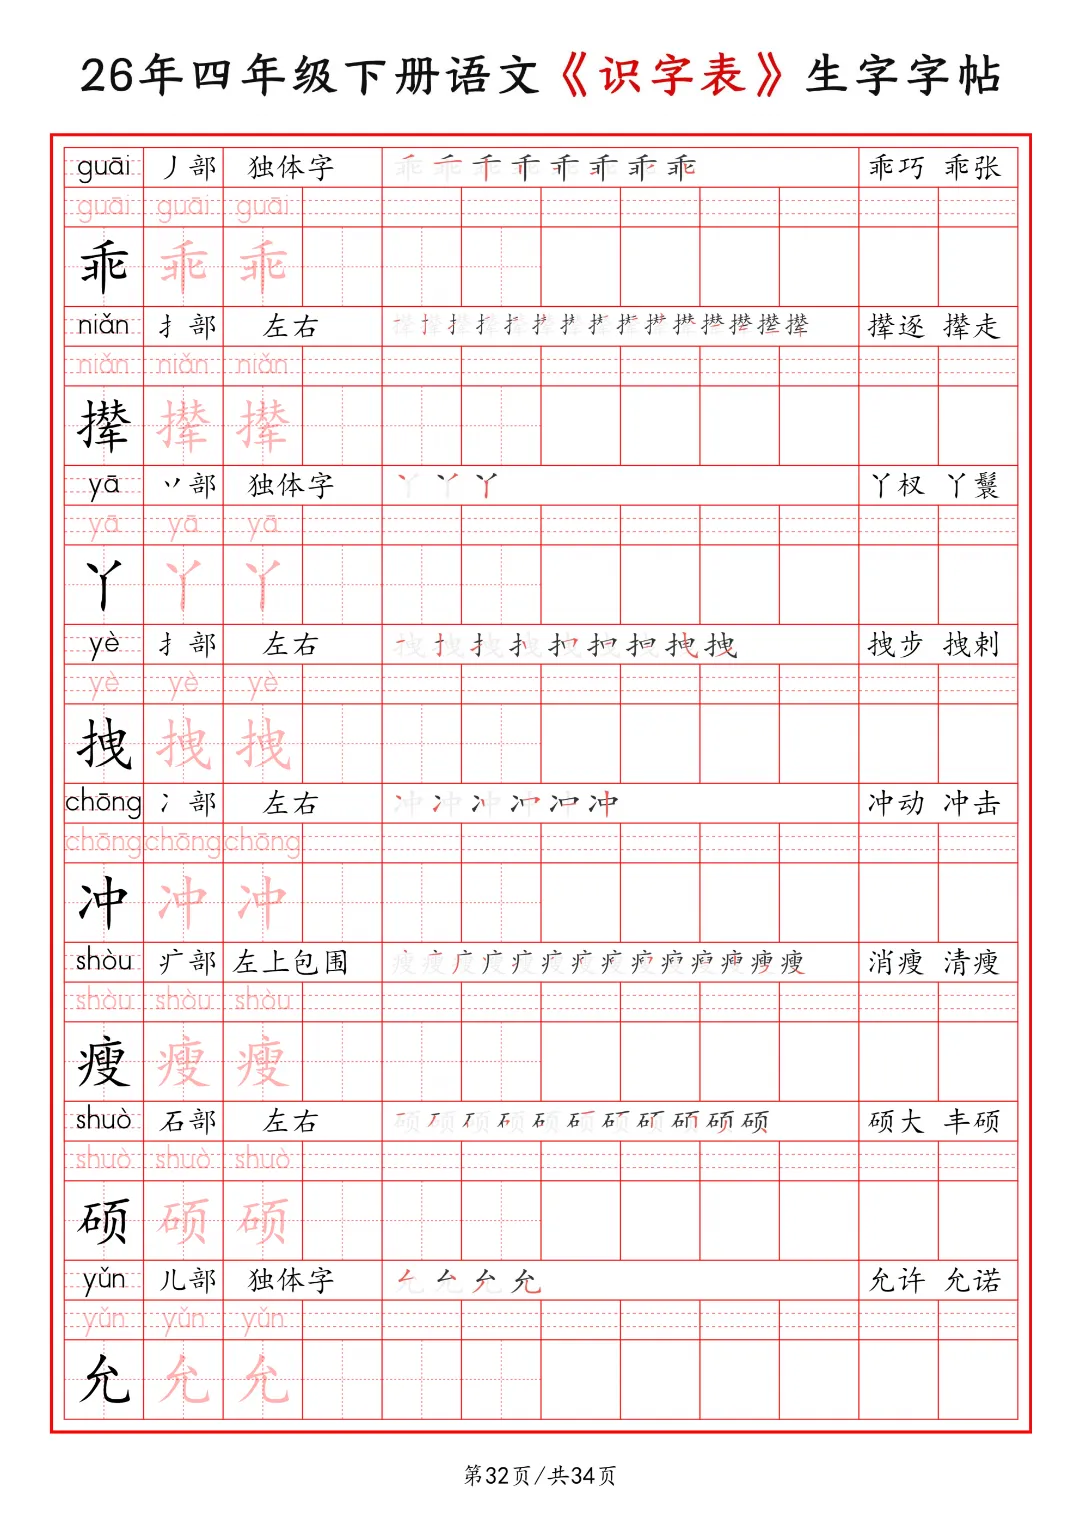 26年四年级下册语文《识字表》生字字帖
guāi 丿部 独体字 乖 乖 乖 乖 乖 乖 乖 乖 乖巧 乖张
guāi guāi guāi
乖 乖 乖
niǎn 扌部 左右 撵 撵 撵 撵 撵 撵 撵 撵 撵 撵 撵 撵 撵 撵 撵 撵逐 撵走
niǎn niǎn niǎn
撵 撵 撵
yā 丷部 独体字 丫 丫 丫 丫杈 丫鬟
yā yā yā
丫 丫 丫
yè 扌部 左右 拽 拽 拽 拽 拽 拽 拽 拽 拽 拽步 拽剌
yè yè yè
拽 拽 拽
chōng 冫部 左右 冲 冲 冲 冲 冲 冲 冲动 冲击
chōng chōng chōng
冲 冲 冲
shòu 疒部 左上包围 瘦 瘦 瘦 瘦 瘦 瘦 瘦 瘦 瘦 瘦 瘦 瘦 瘦 瘦 消瘦 清瘦
shòu shòu shòu
瘦 瘦 瘦
shuò 石部 左右 硕 硕 硕 硕 硕 硕 硕 硕 硕 硕 硕 硕大 丰硕
shuò shuò shuò
硕 硕 硕
yǔn 儿部 独体字 允 允 允 允 允许 允诺
yǔn yǔn yǔn
允 允 允
第32页/共34页